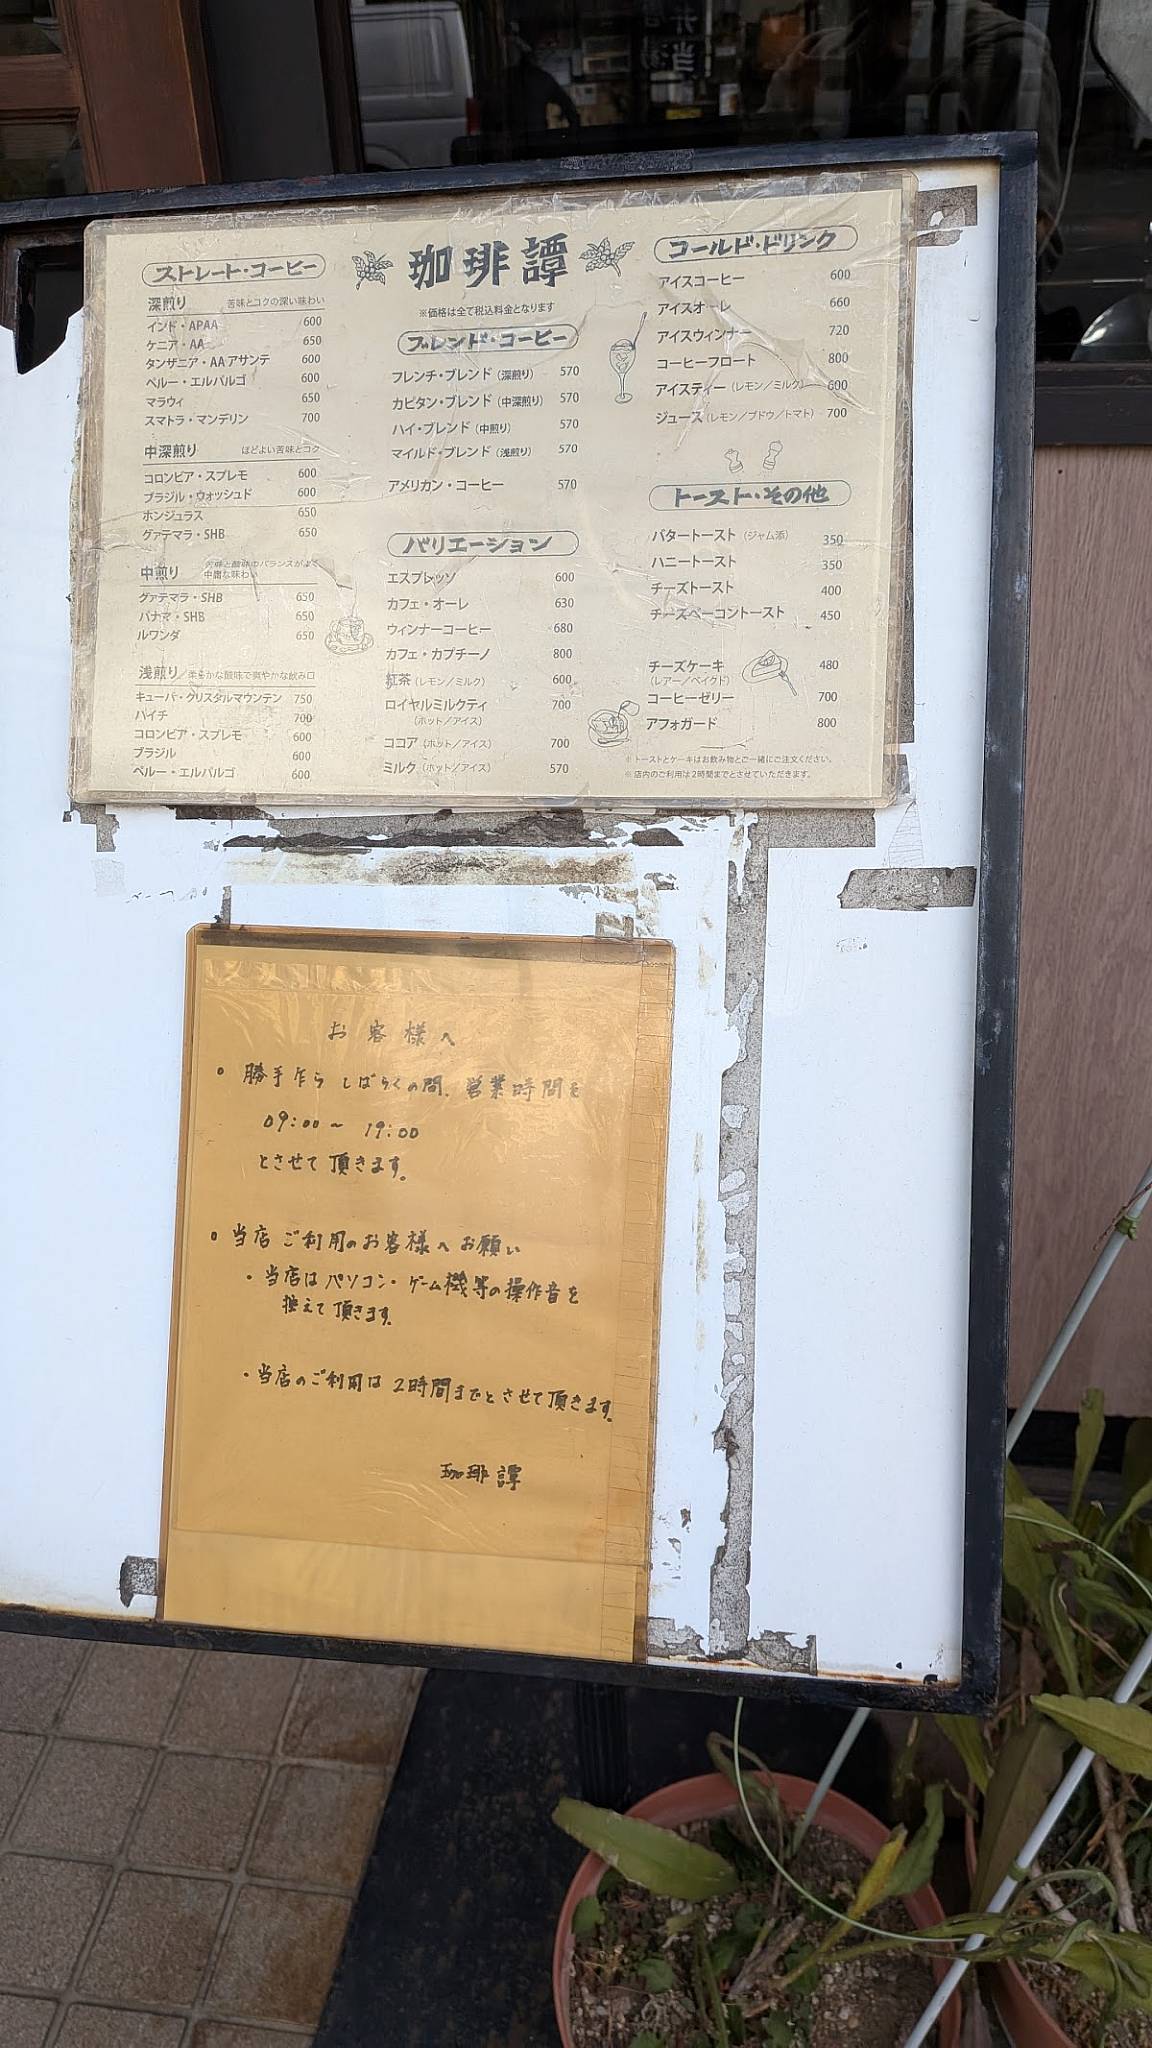 弁当湯
珈琲譚
※価格は全て税込料金となります
ストレート・コーヒー
深煎り 苦味とコクの深い味わい
インド・APAA 600
ケニア・AA 650
タンザニア・AAアサンテ 600
ペルー・エルパルゴ 600
マラウィ 650
スマトラ・マンデリン 700
中深煎り ほどよい苦味とコク
コロンビア・スプレモ 600
ブラジル・ウォッシュド 600
ホンジュラス 650
グァテマラ・SHB 650
中煎り 苦味と酸味のバランスがよく
中庸な味わい
グァテマラ・SHB 650
パナマ・SHB 650
ルワンダ 650
浅煎り/柔らかな酸味で爽やかな飲み口
キューバ・クリスタルマウンテン 750
ハイチ 700
コロンビア・スプレモ 600
ブラジル 600
ペルー・エルパルゴ 600
ブレンド・コーヒー
フレンチ・ブレンド(深煎り) 570
カピタン・ブレンド(中深煎り) 570
ハイ・ブレンド(中煎り) 570
マイルド・ブレンド(浅煎り) 570
アメリカン・コーヒー 570
バリエーション
エスプレッソ 600
カフェ・オーレ 630
ウィンナーコーヒー 680
カフェ・カプチーノ 800
紅茶(レモン/ミルク) 600
ロイヤルミルクティ 700
(ホット/アイス)
ココア(ホット/アイス) 700
ミルク(ホット/アイス) 570
コールド・ドリンク
アイスコーヒー 600
アイスオーレ 660
アイスウィンナー 720
コーヒーフロート 800
アイスティー(レモン/ミルク) 600
ジュース(レモン/ブドウ/トマト) 700
トースト・その他
バタートースト(ジャム添) 350
ハニートースト 350
チーズトースト 400
チーズベーコントースト 450
チーズケーキ 480
(レアー/ベイクド)
コーヒーゼリー 700
アフォガード 800
※トーストとケーキはお飲み物とご一緒にご注文ください。
※店内のご利用は2時間までとさせていただきます。
お客様へ
。勝手乍ら しばらくの間、営業時間を
09:00~19:00
とさせて頂きます。
。当店ご利用のお客様へお願い
・当店はパソコン・ゲーム機等の操作音を
控えて頂きます。
・当店のご利用は2時間までとさせて頂きます。
珈琲譚